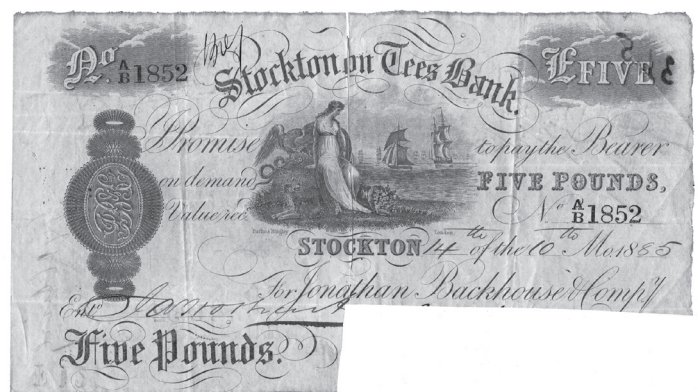 No. A/B 1852
Stockton on Tees Bank.
£FIVE
I Promise to pay the Bearer
on demand FIVE POUNDS,
Value recd No A/B 1852
STOCKTON 14th of the 10th Mo. 1885
For Jonathan Backhouse & Compy
Entd
Five Pounds.